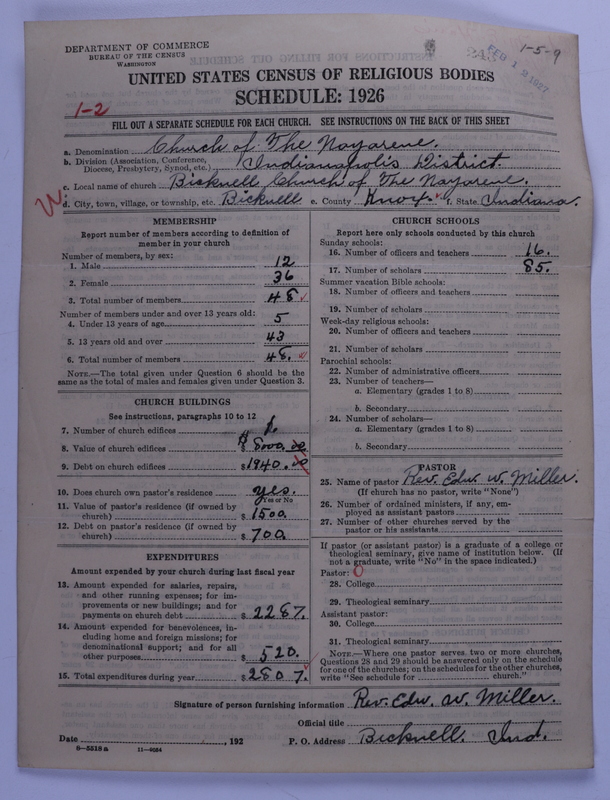 DEPARTMENT OF COMMERCE
BUREAU OF THE CENSUS
WASHINGTON
1-5-9
FEB 12 1927
UNITED STATES CENSUS OF RELIGIOUS BODIES
SCHEDULE: 1926
1-2
FILL OUT A SEPARATE SCHEDULE FOR EACH CHURCH. SEE INSTRUCTIONS ON THE BACK OF THIS SHEET
a. Denomination Church of The Nazarene.
b. Division (Association, Conference, Diocese, Presbytery, Synod, etc.) Indianapolis District.
c. Local name of church Bicknell Church of The Nazarene.
d. City, town, village, or township, etc. Bicknell e. County Knox. f. State Indiana.
MEMBERSHIP
Report number of members according to definition of
member in your church
Number of members, by sex:
1. Male 12
2. Female 36
3. Total number of members 48
Number of members under and over 13 years old:
4. Under 13 years of age 5
5. 13 years old and over 43
6. Total number of members 48.
NOTE.—The total given under Question 6 should be
same as the total of males and females given under Question 3.
CHURCH BUILDINGS
See instructions, paragraphs 10 to 12
7. Number of church edifices 1.
8. Value of church edifices $ 8000.00
9. Debt on church edifices $1940.00
10. Does church own pastor's residence yes.
Yes or No
11. Value of pastor's residence (if owned by
church) $1500.
12. Debt on pastor's residence (if owned by
church) $700.
EXPENDITURES
Amount expended by your church during last fiscal year
13. Amount expended for salaries, repairs,
and other running expenses; for im-
provements or new buildings; and for
payments on church debt $2287.
14. Amount expended for benevolences, in-
cluding home and foreign missions; for
denominational support; and for all
other purposes $520.
15. Total expenditures during year $2807.
CHURCH SCHOOLS
Report here only schools conducted by this church
Sunday schools:
16. Number of officers and teachers 16.
17. Number of scholars 85.
Summer vacation Bible schools:
18. Number of officers and teachers
19. Number of scholars
Week-day religious schools:
20. Number of officers and teachers
21. Number of scholars
Parochial schools:
22. Number of administrative officers
23. Number of teachers—
a. Elementary (grades 1 to 8)
b. Secondary
24. Number of scholars—
a. Elementary (grades 1 to 8)
b. Secondary
PASTOR
25. Name of pastor Rev. Edw. W. Miller.
(If church has no pastor, write "None")
26. Number of ordained ministers, if any, em-
ployed as assistant pastors
27. Number of other churches served by the
pastor or his assistants
If pastor (or assistant pastor) is a graduate of a college or
theological seminary, give name of institution below. (If
not a graduate, write "No" in the space indicated.)
Pastor: 0
28. College
29. Theological seminary
Assistant pastor:
30. College
31. Theological seminary
NOTE.—Where one pastor serves two or more churches,
Questions 28 and 29 should be answered only on the schedule
for one of the churches; on the schedules for the other churches,
write "See schedule for church."
Signature of person furnishing information Rev. Edw. W. Miller.
Official title
Date , 192 P. O. Address Bicknell. Ind.
8-5518a 11-9034